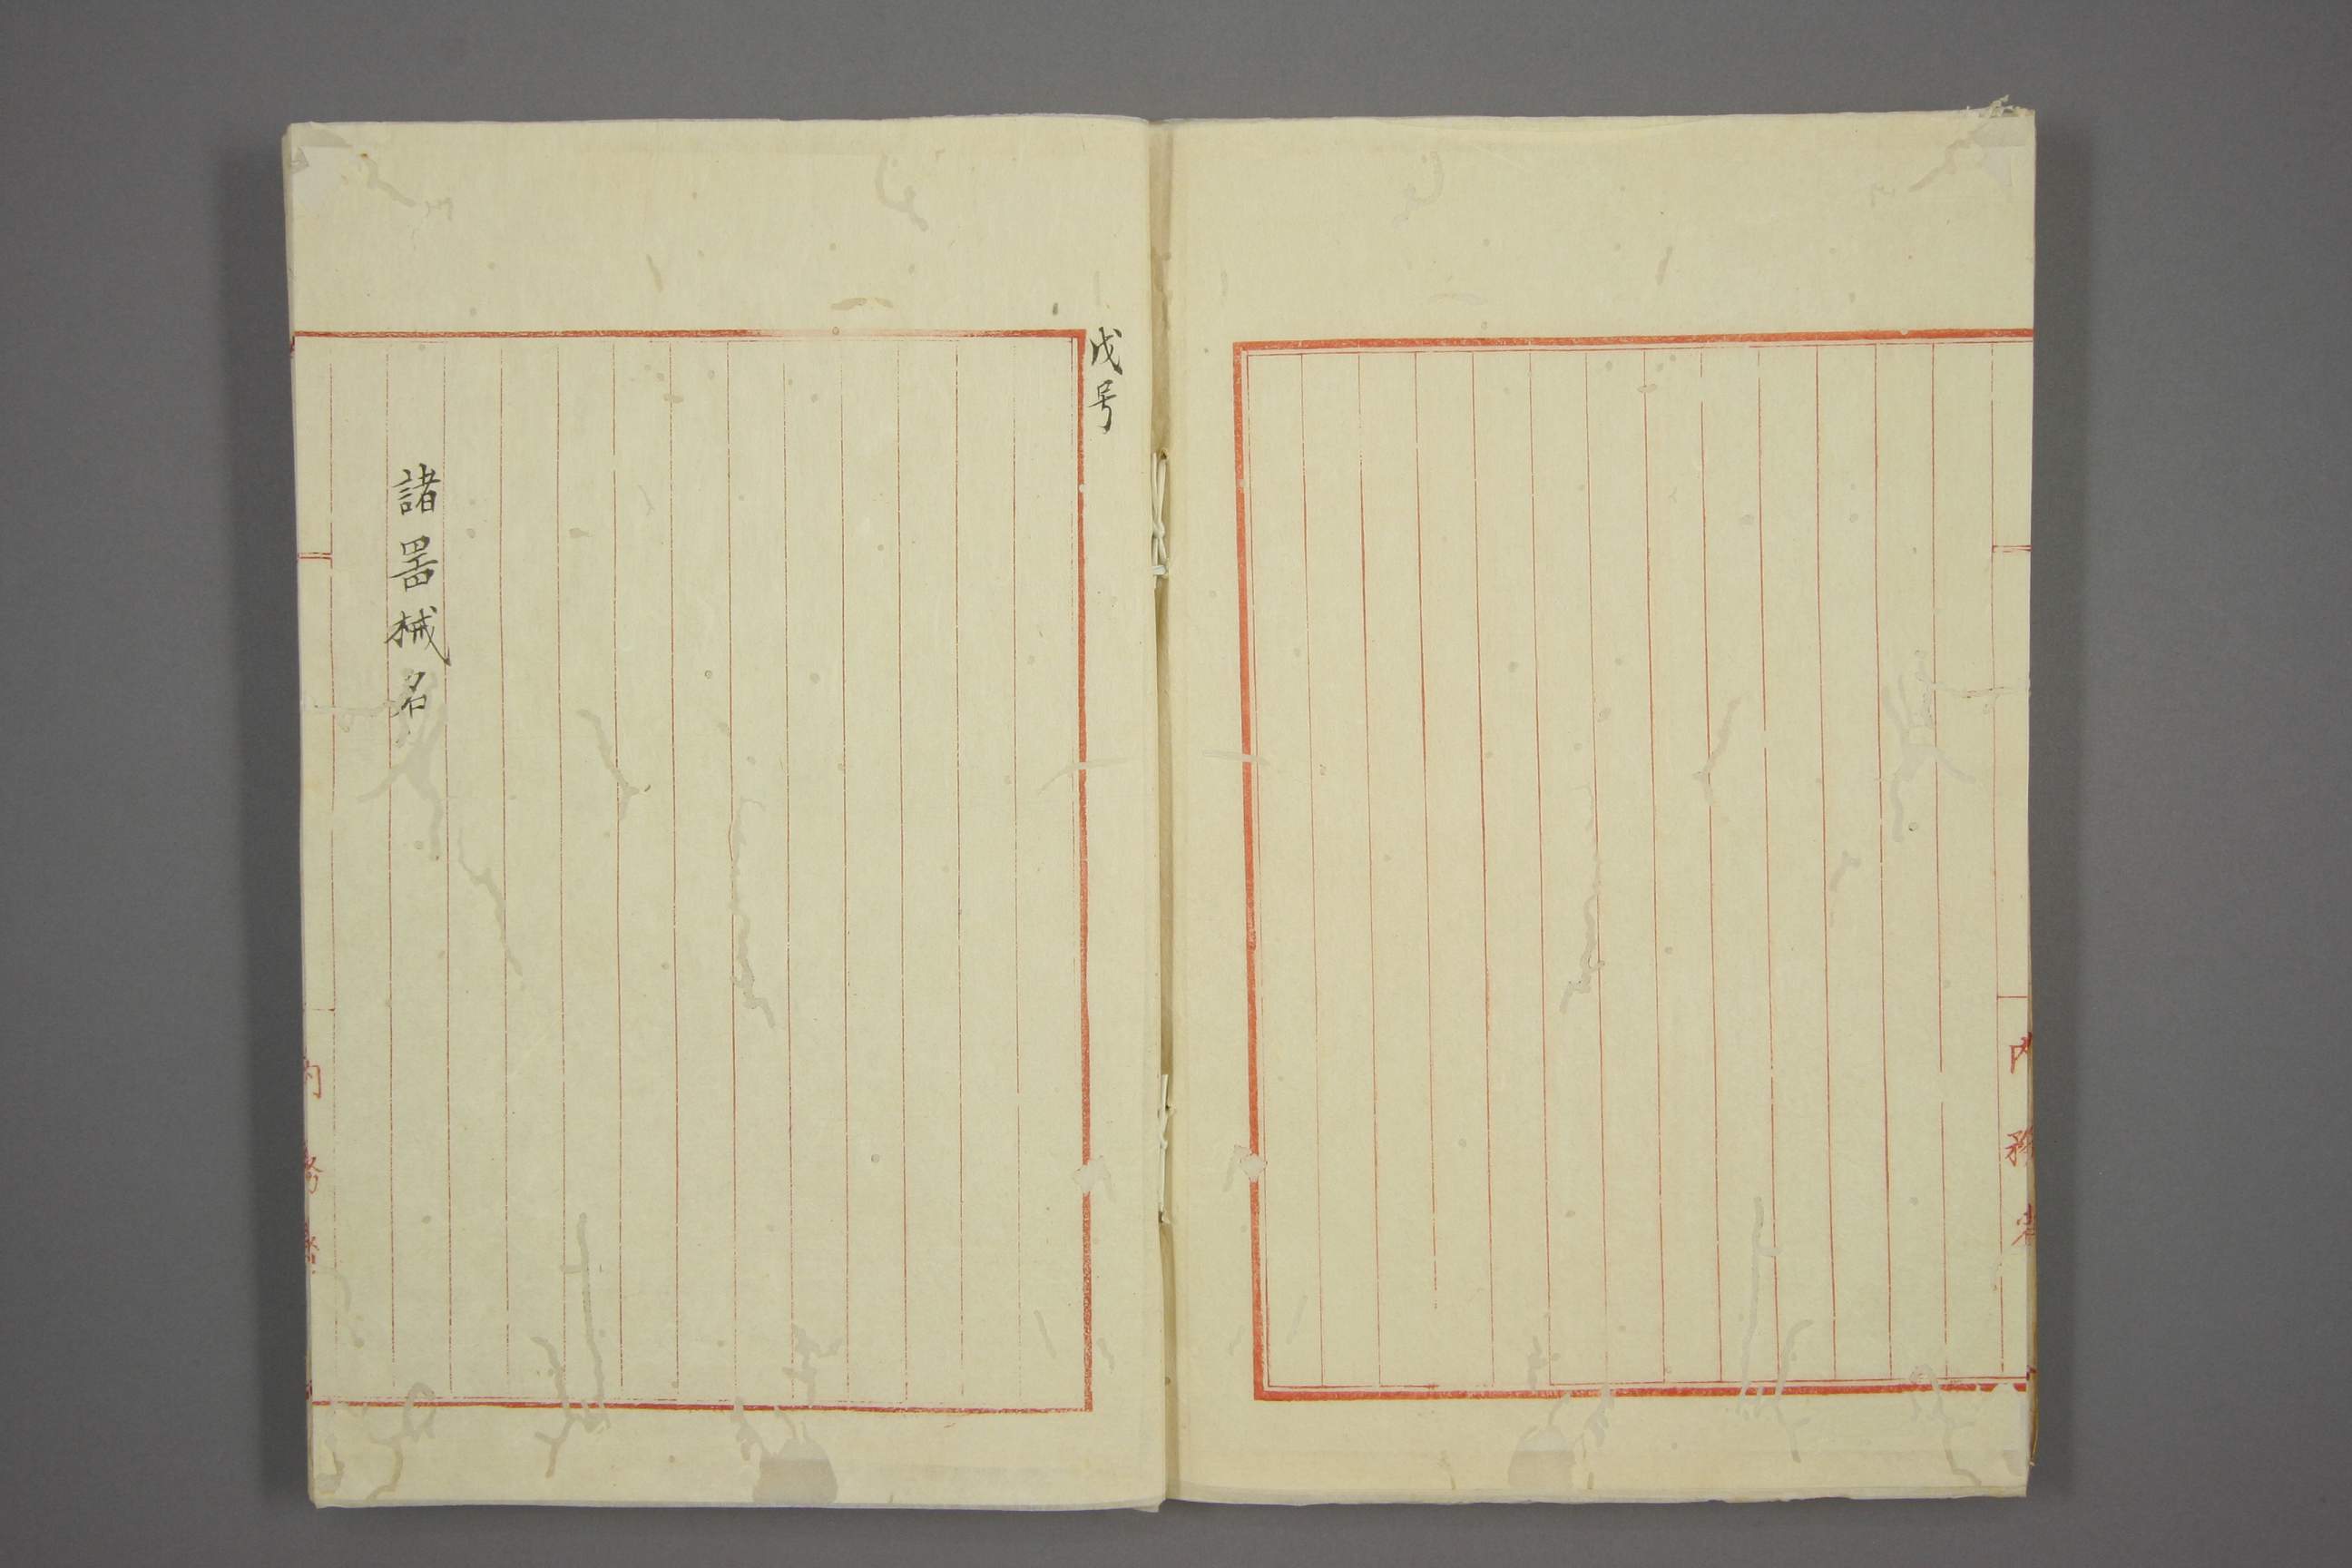 内務省
戊号
諸噐械名
内務省